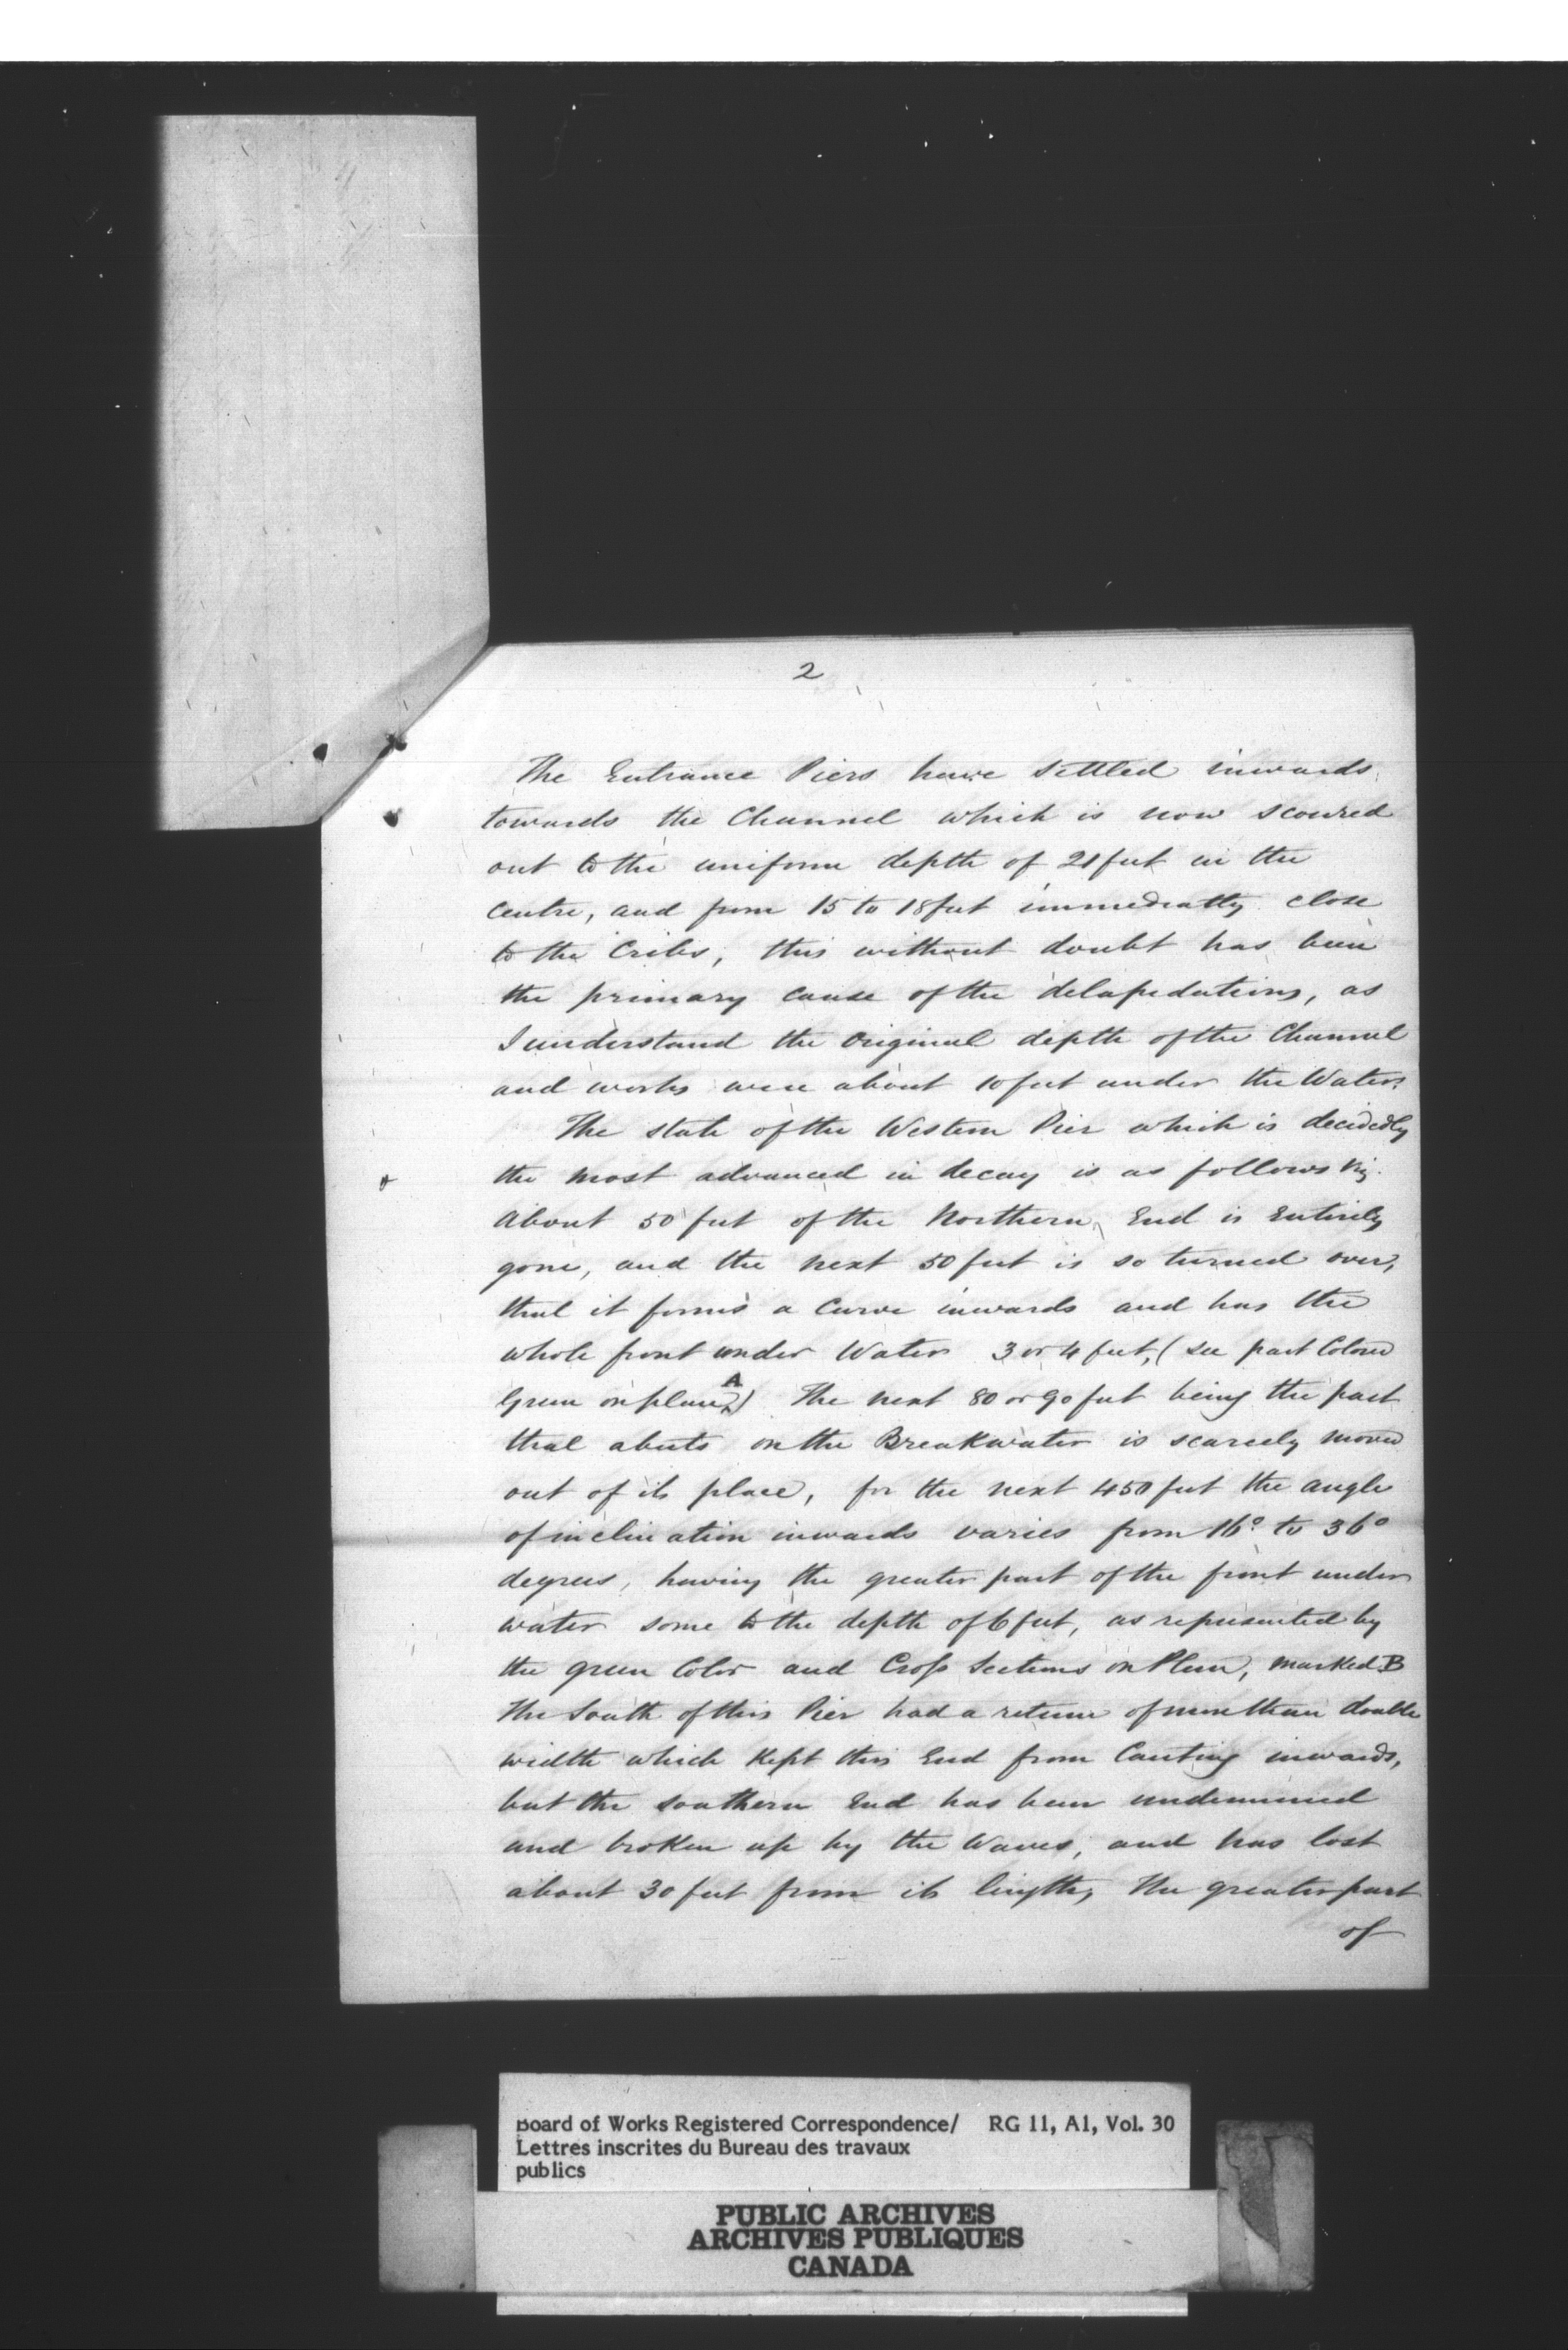 2
The Entrance Piers have settled inwards
towards the Channel which is now scoured
out to the uniform depth of 21 feet in the
centre, and from 15 to 18 feet immediatly close
to the Cribs, this without doubt has been
the primary cause of the delapedations, as
I understand the Original depth of the Channel
and works were about 10 feet under the Water.
The state of the Western Pier which is decidedly
the most advanced in decay is as follows viz.
About 50 feet of the Northern End is Entirely
gone, and the next 50 feet is so turned over,
that it forms a Curve inwards and has the
whole front under Water 3 or 4 feet, (see part Colored
Green on plan A) The next 80 or 90 feet being the part
that abuts on the Breakwater is scarcely moved
out of its place, for the next 450 feet the angle
of inclination inwards varies from 16° to 36°
degrees, having the greater part of the front under
water some to the depth of 6 feet, as represented by
the green Color and Cross Sections on Plan, marked B
The South of this Pier had a return of more than double
width which Kept this End from Canting inwards,
but the southern End has been undermined
and broken up by the Waves, and has lost
about 30 feet from its length, The greater part
of
Board of Works Registered Correspondence/ RG 11, A1, Vol. 30
Lettres inscrites du Bureau des travaux
publics
PUBLIC ARCHIVES
ARCHIVES PUBLIQUES
CANADA